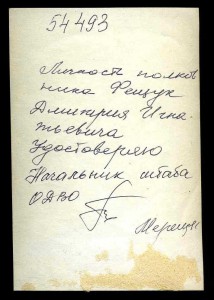 54493
Личность полков
ника Фещук
Дмитрия Игна-
тьевича
Удостоверяю
Начальник штаба
ОДВО
Мерецк